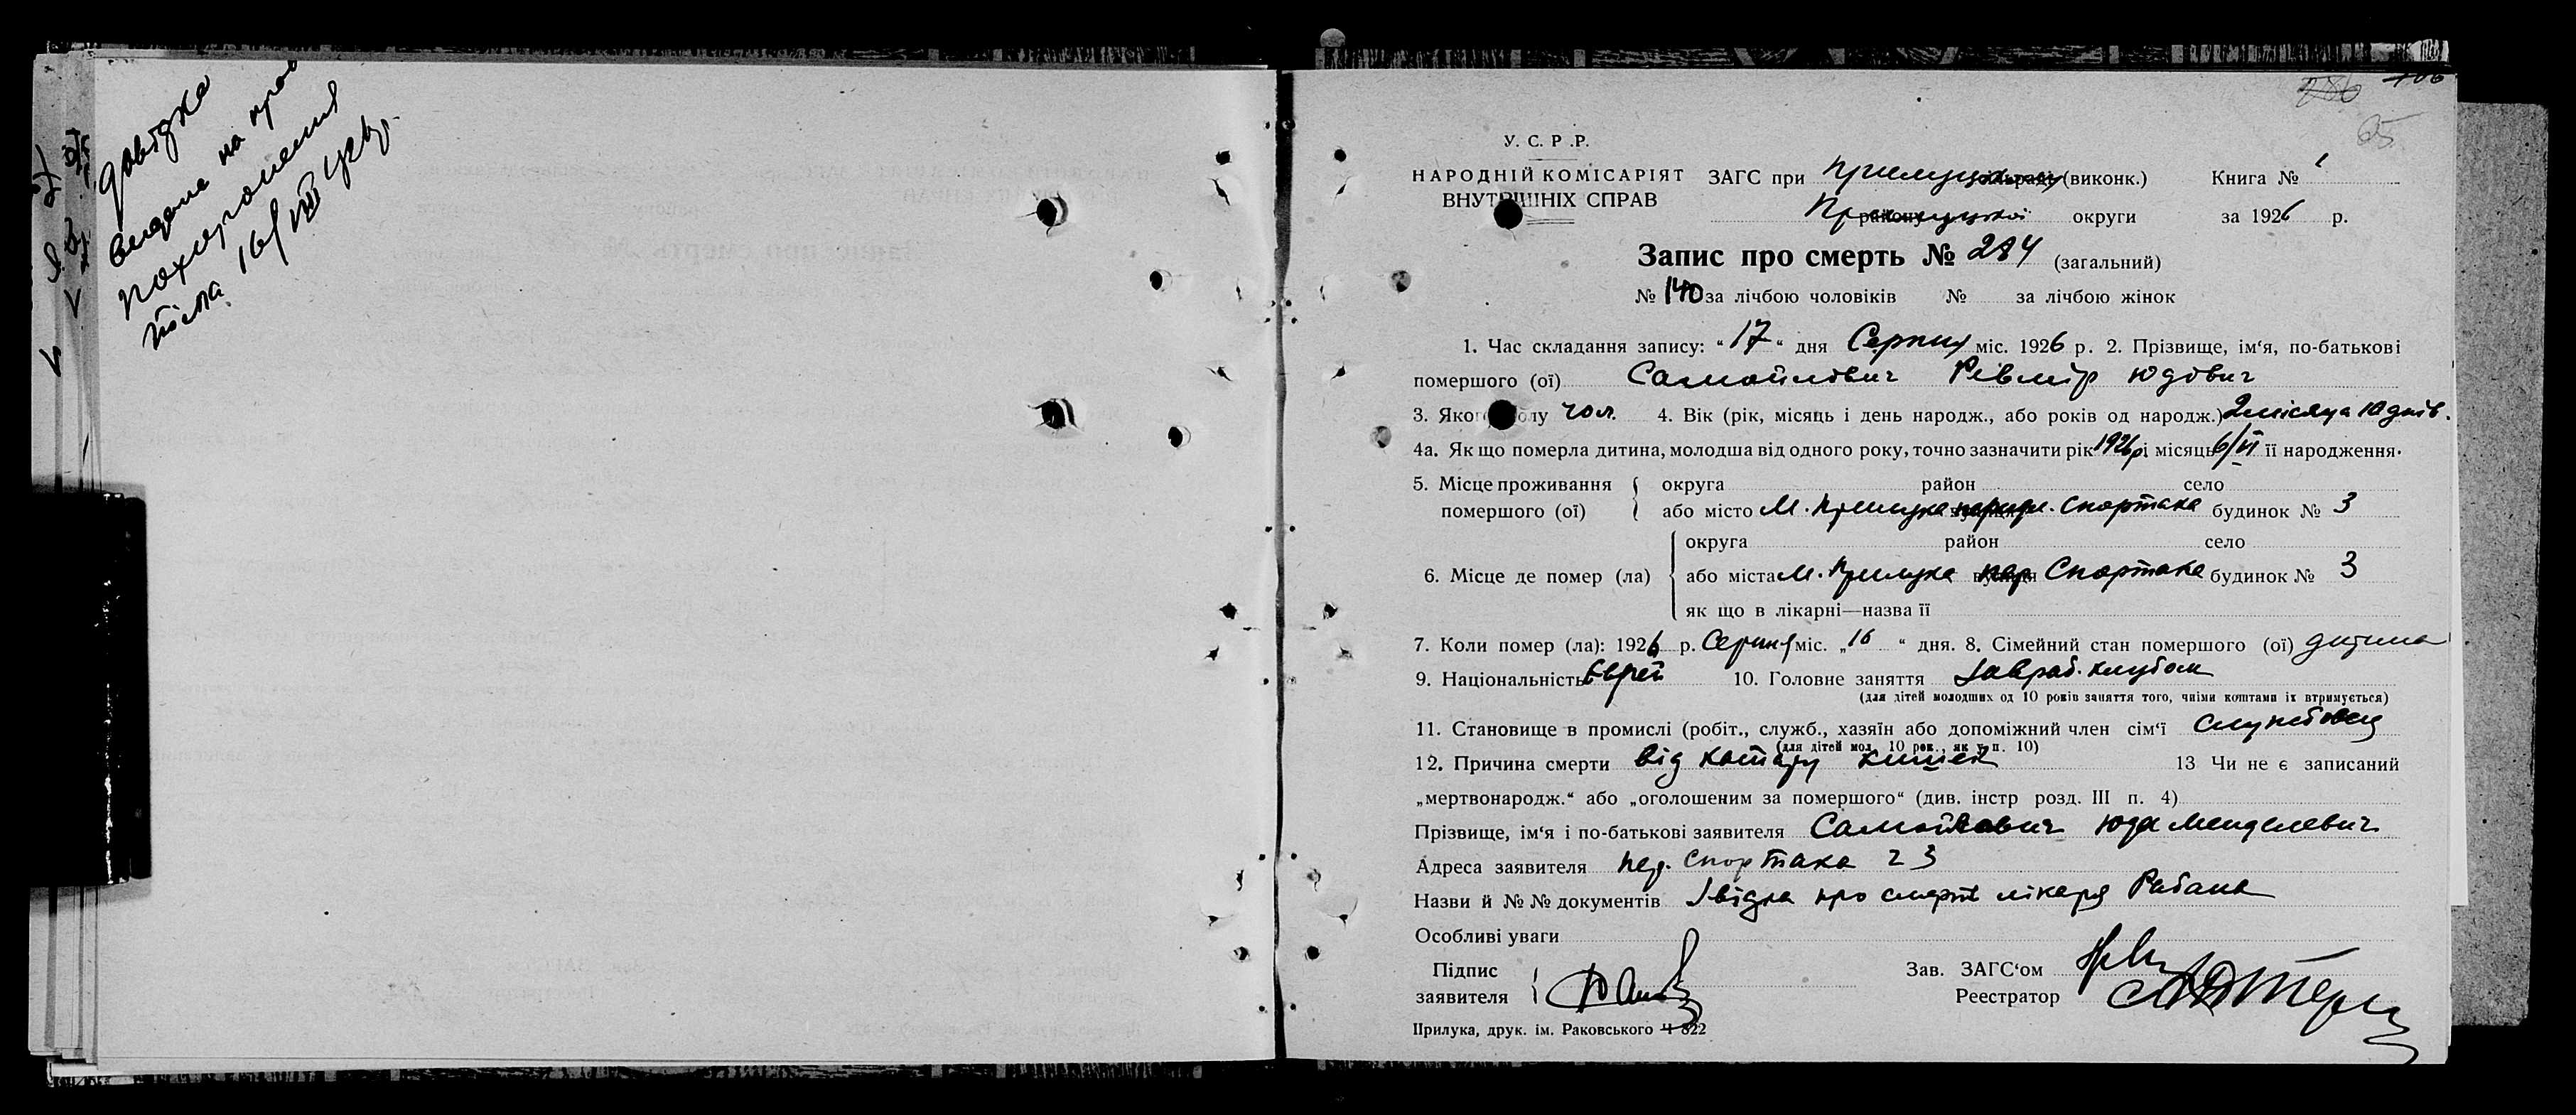 довідка
видана на право
похоронення
тіла 16/VIII
286
65
У. С. Р .Р.
НАРОДНІЙ КОМІСАРІЯТ
ВНУТРІШНІХ СПРАВ
ЗАГС при Прилуцькому (виконк.) Книга № 1
Прилуцької округи за 1926 р.
Запис про смерть № 284 (загальний)
№ 140 за лічбою чоловіків № за лічбою жінок
1. Час складання запису: “ 17 “ дня Серпня міс. 1926 р. 2. Прізвище, ім‘я, по-батькові
помершого (ої) Самойлович Ревмір Юдович
3. Якого полу чол. 4. Вік (рік, місяць і день народж., або років од народж.) 2 місяця 10 днів.
4а. Як що померла дитина, молодша від одного року, точно зазначити рік 1926 р і місяць 6/VI її народження.
5. Місце проживання помершого (ої) { округа район село
або місто М. Прилука Спортака будинок № 3
6. Місце де помер (ла) { округа район село
або міста м. Прилука пер Спортака будинок № 3
як що в лікарні—назва її
7. Коли помер (ла): 1926 р. Серпня міс. „16 “ дня. 8. Сімейний стан помершого (ої) дитина
9. Національність Єврей 10. Головне заняття Завраб. клубом
(для дітей молодших од 10 років заняття того, чиїми коштами їх втримується)
11. Становище в промислі (робіт., служб., хазяїн або допоміжний член сім‘ї службовец
(для дітей мол. 10 рок., як у п. 10)
12. Причина смерти від катару кишек 13 Чи не є записаний
„мертвонародж.“ або „оголошеним за помершого“ (див. інстр розд. III п. 4)
Прізвище, ім‘я і по-батькові заявителя Самойлович Юда Менделевич
Адреса заявителя пер. Спортака 3
Назви й № № документів про смерть лікаря Рабана
Особливі уваги
Підпис
заявителя
Зав. ЗАГС‘ом
Реестратор
Прилука, друк. ім. Раковського Ч 822